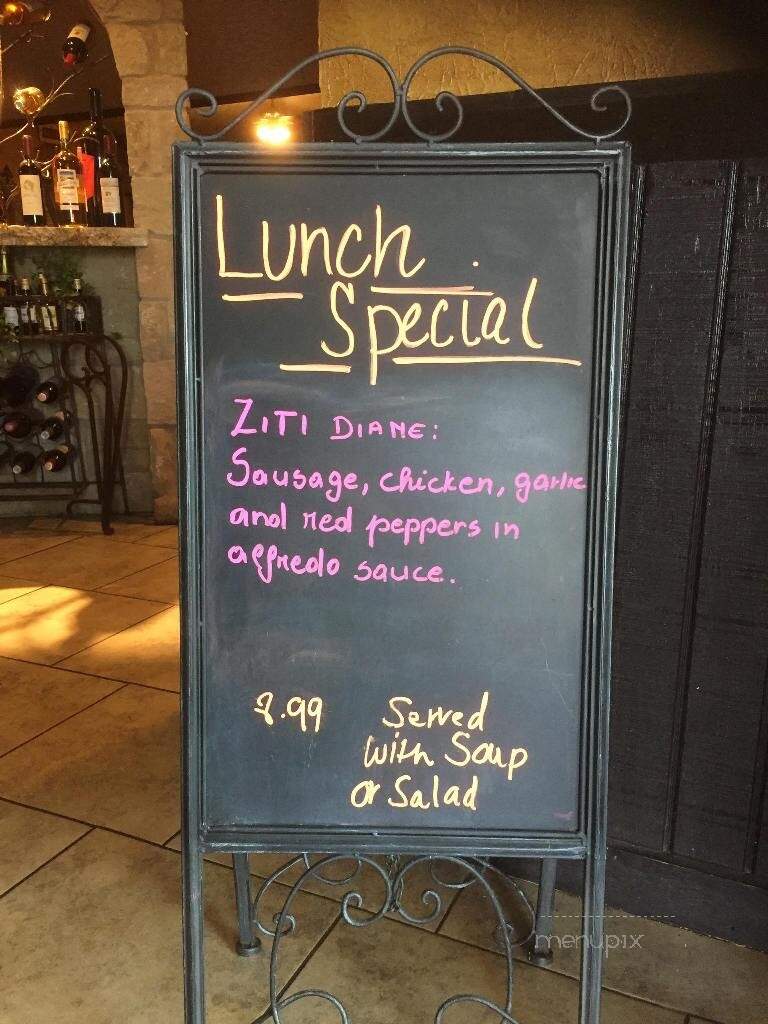 Lunch
Special
ZITI DIANE:
Sausage, chicken, garlic
and red peppers in
alfredo sauce.
8.99
Served
with Soup
or Salad
menupix